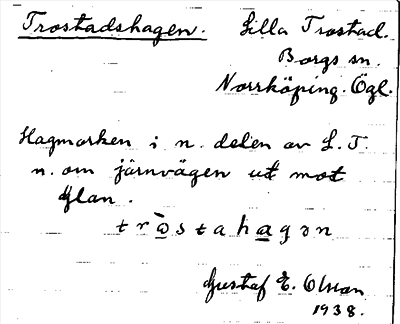 Trostadshagen. Lilla Trostad.
Borgs sn.
Norrköping. Ögl.
Hagmarken i n. delen av L. T.
n. om järnvägen ut mot
Glan.
tròstahagən
Gustaf E. Olsson
1938.